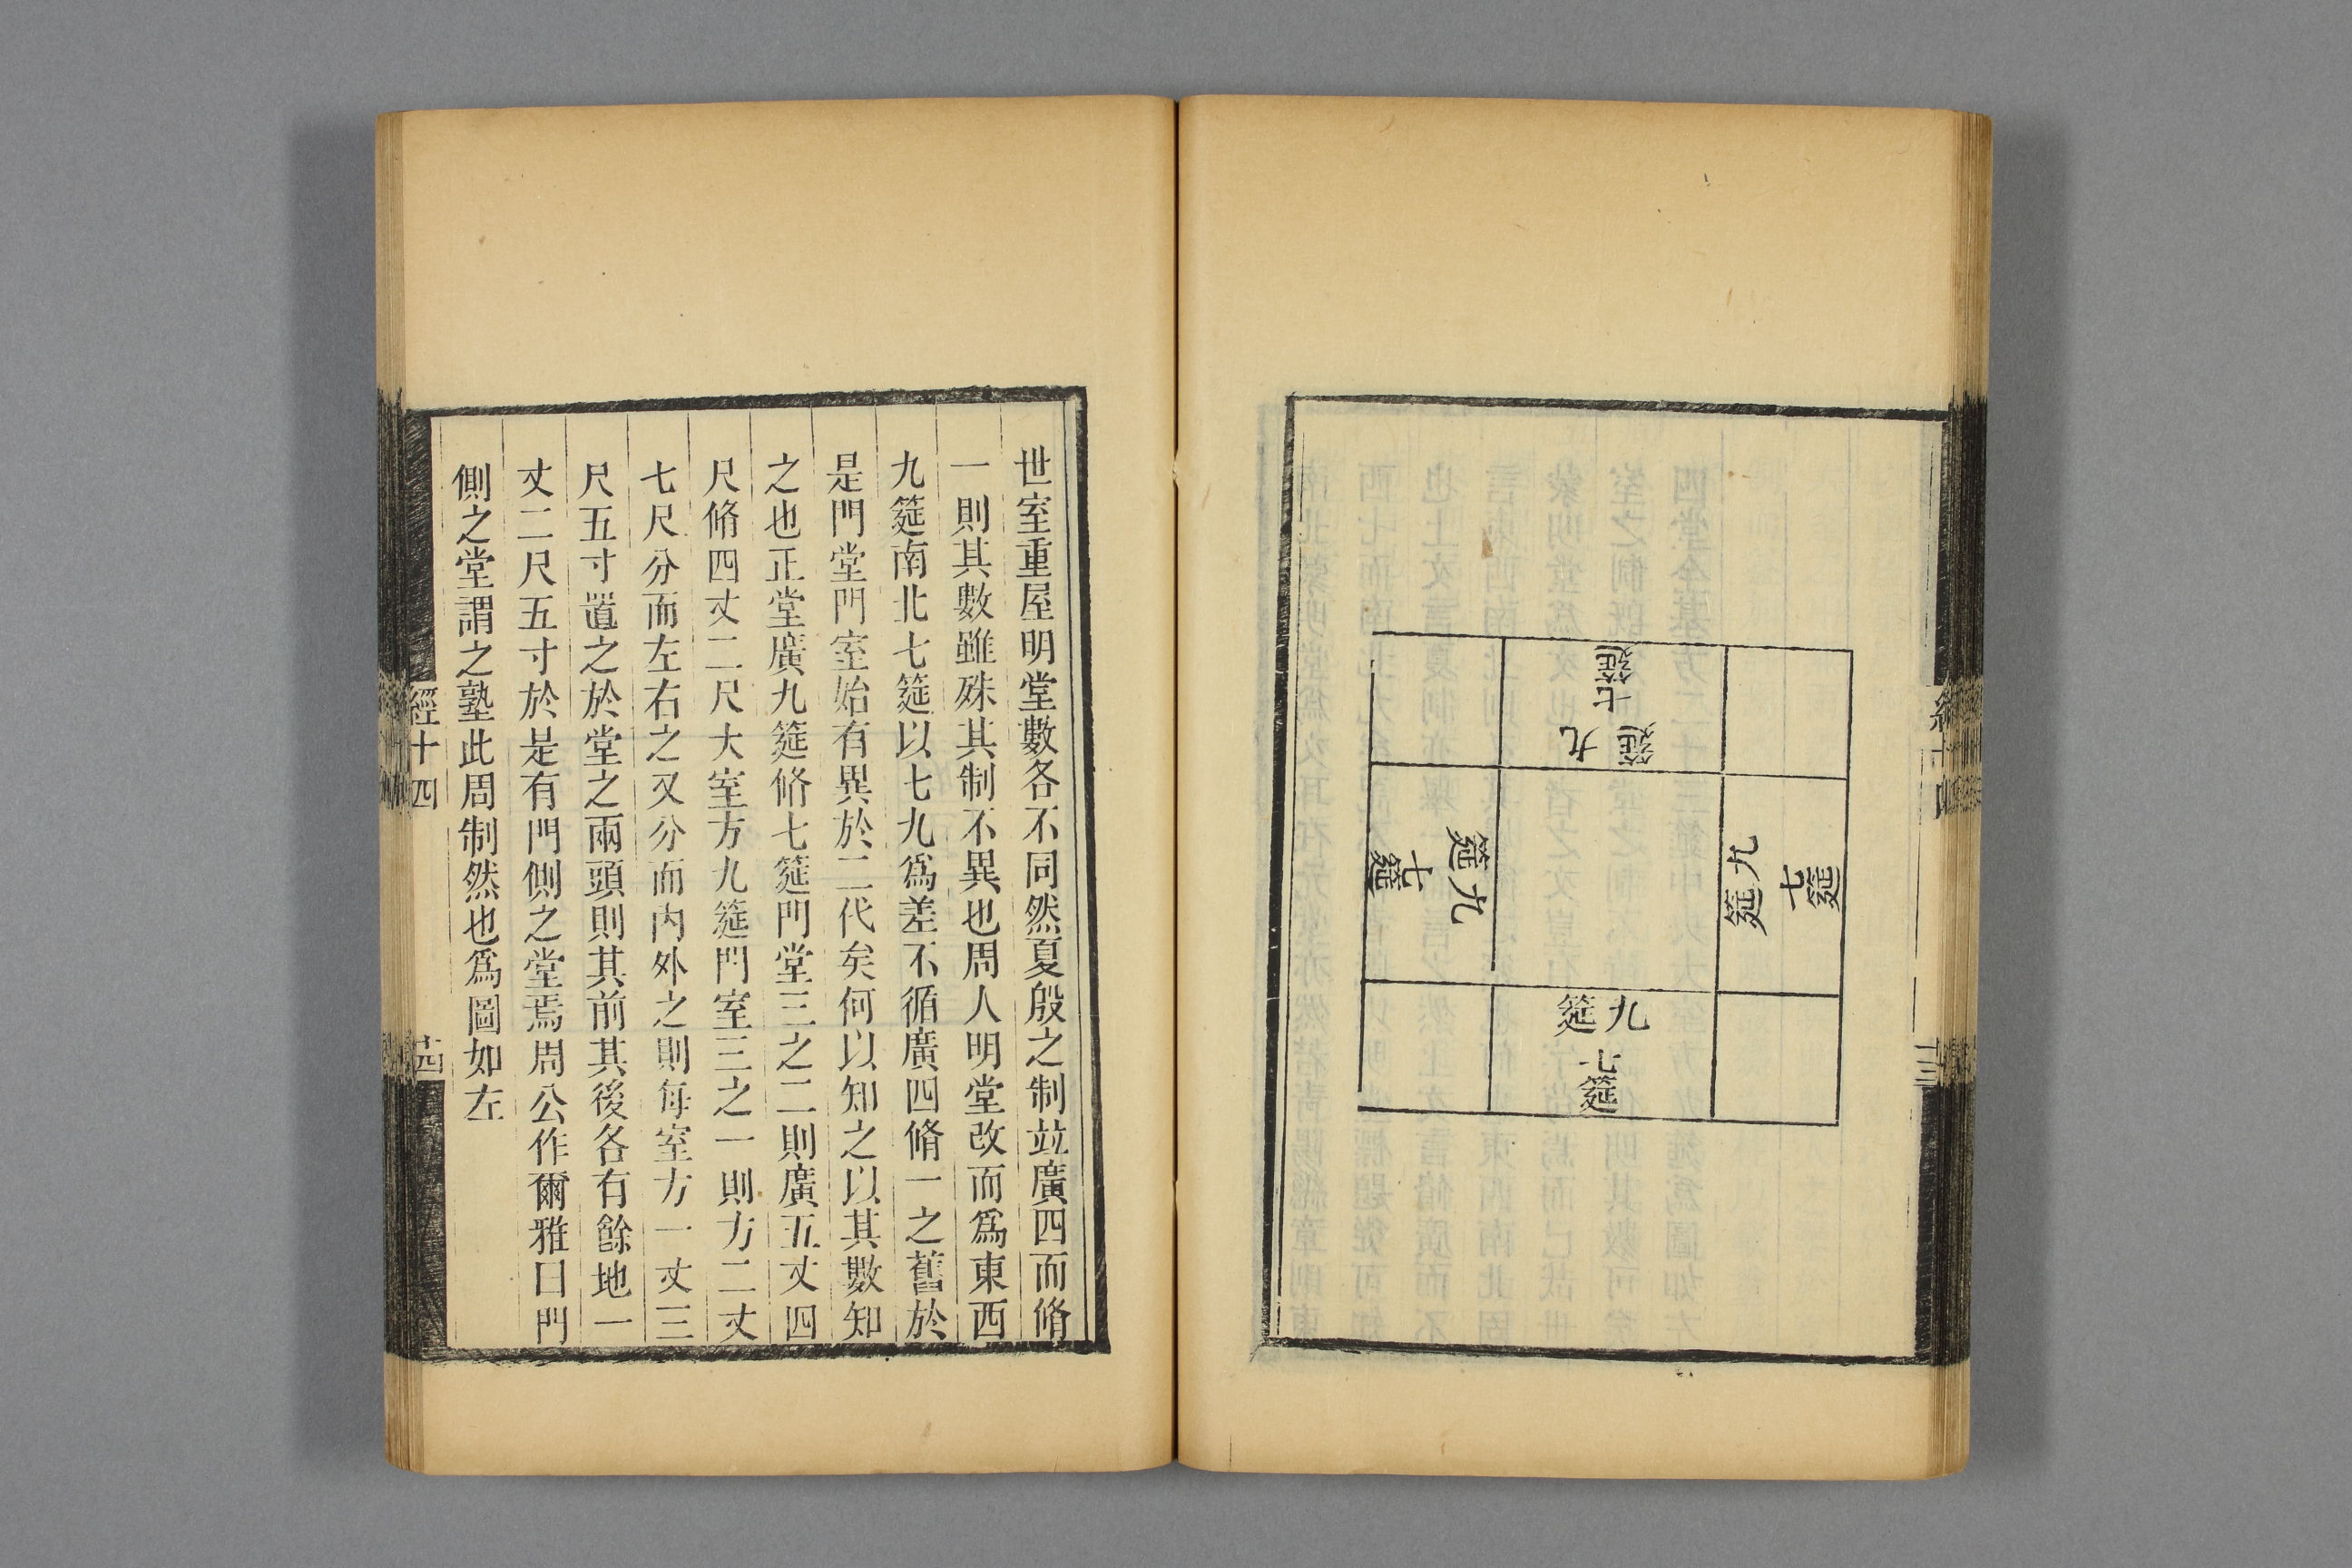 七筵
九筵
九筵
七筵
九筵
七筵
九筵
七筵
世室重屋明堂數各不同然夏殷之制竝廣四而脩
一則其數雖殊其制不異也周人明堂改而爲東西
九筵南北七筵以七九爲差不循廣四脩一之舊於
是門堂門室始有異於二代矣何以知之以其數知
之也正堂廣九筵脩七筵門堂三之二則廣五丈四
尺脩四丈二尺大室方九筵門室三之一則方二丈
七尺分而左右之又分而內外之則每室方一丈三
尺五寸置之於堂之兩頭則其前其後各有餘地一
丈二尺五寸於是有門側之堂焉周公作爾雅曰門
側之堂謂之塾此周制然也爲圖如左
經十四
十四